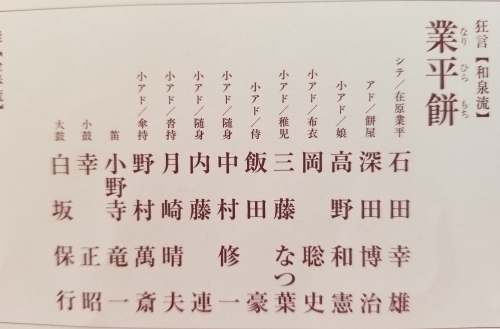 狂言【和泉流】
業平餅
なりひらもち
シテ／在原業平 石田幸雄
アド／餅屋 深田博治
小アド／娘 高野和憲
小アド／布衣 岡聡史
小アド／稚児 三藤なつ葉
小アド／侍 飯田豪
小アド／随身 中村修一
小アド／随身 内藤連
小アド／沓持 月崎晴夫
小アド／傘持 野村萬斎
笛 小野寺竜一
小鼓 幸正昭
大鼓 白坂保行